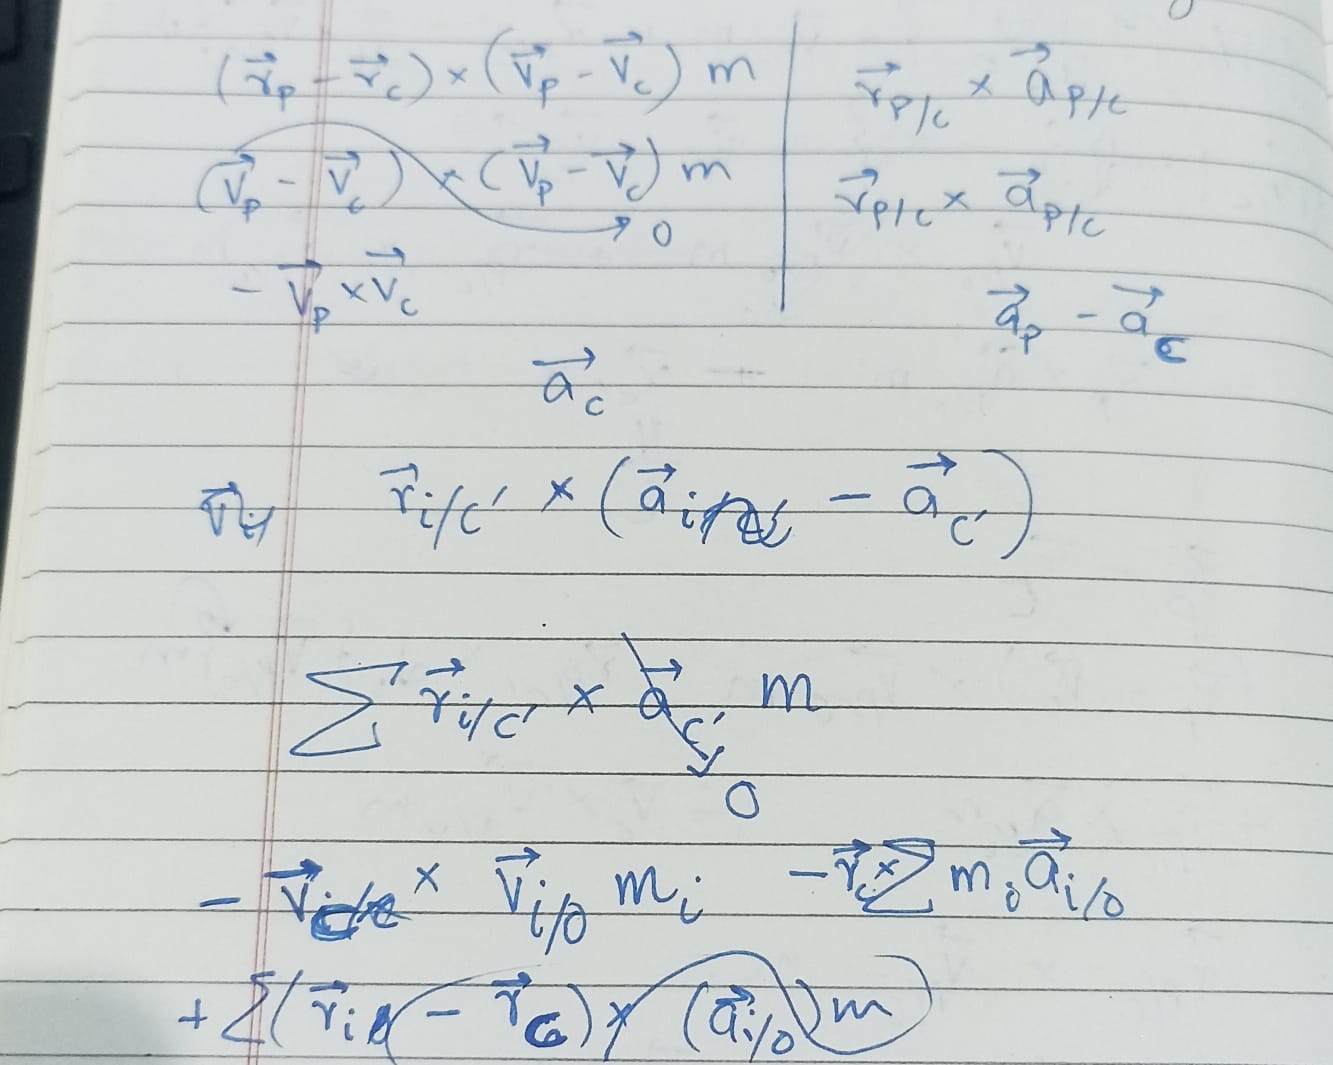 (r⃗_p - r⃗_c) × (v⃗_p - v⃗_c) m
(v⃗_p - v⃗_c) × (v⃗_p - v⃗_c) m
→ 0
- v⃗_p × v⃗_c
r⃗_{P/C} × a⃗_{P/C}
r⃗_{P/C} × a⃗_{P/C}
a⃗_p - a⃗_c
a⃗_c
r⃗_{i/C'} × (a⃗_i - a⃗_{C'})
Σ r⃗_{i/C'} × a⃗_{C'} m
0
- v⃗_c × v⃗_{i/0} m_i - r⃗_c × Σ m_i a⃗_{i/0}
+ Σ (r⃗_i - r⃗_G) × (a⃗_{i/0}) m